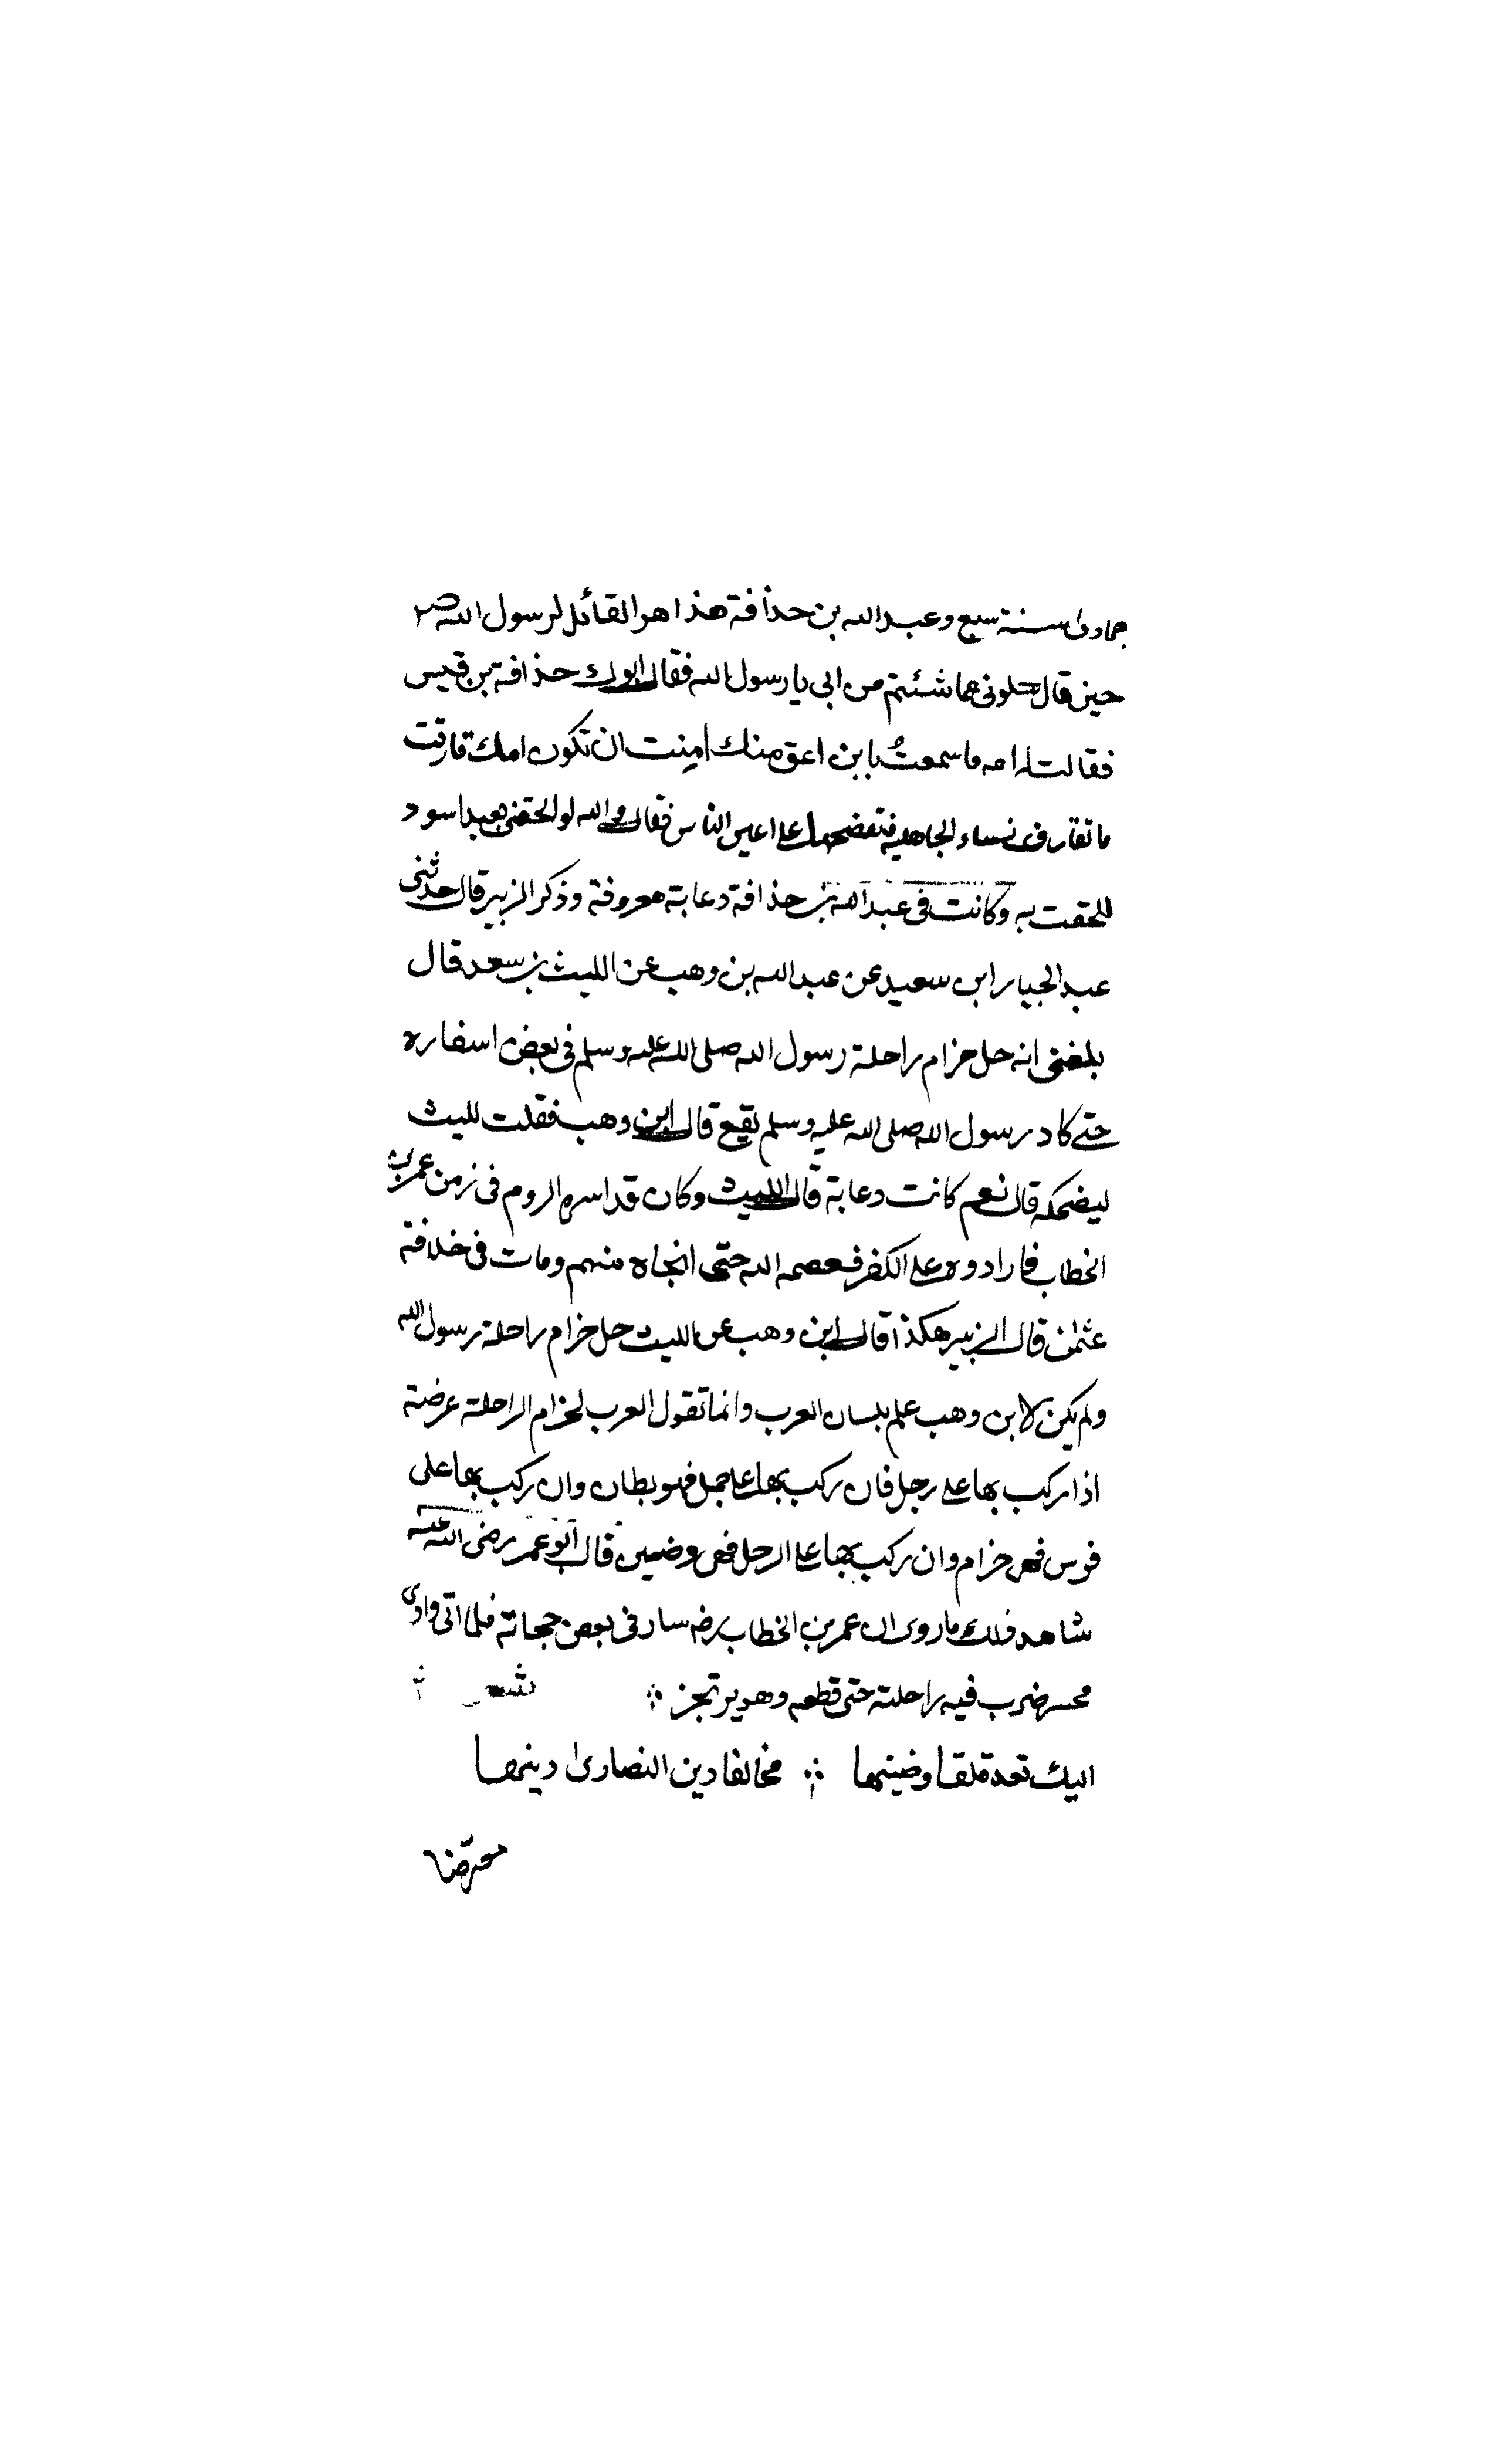 جمادى سنة سبع وعبد الله بن حذافة هذا هو القائل لرسول الله صم
حين قال سلونى عما شئتم من ابى يا رسول الله فقال ابوك حذافة بن قيس
فقالت له امه ما سمعتُ بابن اعق منك امنت ان تكون امك قارفت
ما تقارف نساء الجاهلية فتفضحها على اعين الناس فقال والله لو الحقنى بعبد اسود
للحقت به وكانت فى عبد الله بن حذافة دعابة معروفة وذكر الزبير قال حدثنى
عبد الجبار ابن سعيد عن عبد الله بن وهب عن الليث بن سعد قال
بلغنى انه حل حزام راحلة رسول الله صلى الله عليه وسلم فى بعض اسفاره
حتى كاد رسول الله صلى الله عليه وسلم يقع قال ابن وهب فقلت لليث
ليضحكه قال نعم كانت دعابة قال الليث وكان قد اسره الروم فى زمن عمر بن
الخطاب فارادوه على الكفر فعصمه الله حتى انجاه منهم ومات فى خلافة
عثمٰن قال الزبير هكذا قال ابن وهب عن الليث حل حزام راحلة رسول الله
ولم يكن لابن وهب علم بلسان العرب وانما تقول العرب لحزام الراحلة عرضة
اذا ركب بها على رحل فان ركب بها على جمل فهو بطان وان ركب بها على
فرس فهو حزام وان ركب بها على الرحل فهى وضين قال ابو عمر رضى الله عنه
شاهد ذلك ما روى ان عمر بن الخطاب رضه سار فى بعض حجاته فلما اتى وادى
محسر ضرب فيه راحلته حتى قطعه وهو يرتجز ؞ شعر ؞
اليك تعدو قلقا وضينها ؞ مخالفا دين النصارى دينها
معرضا